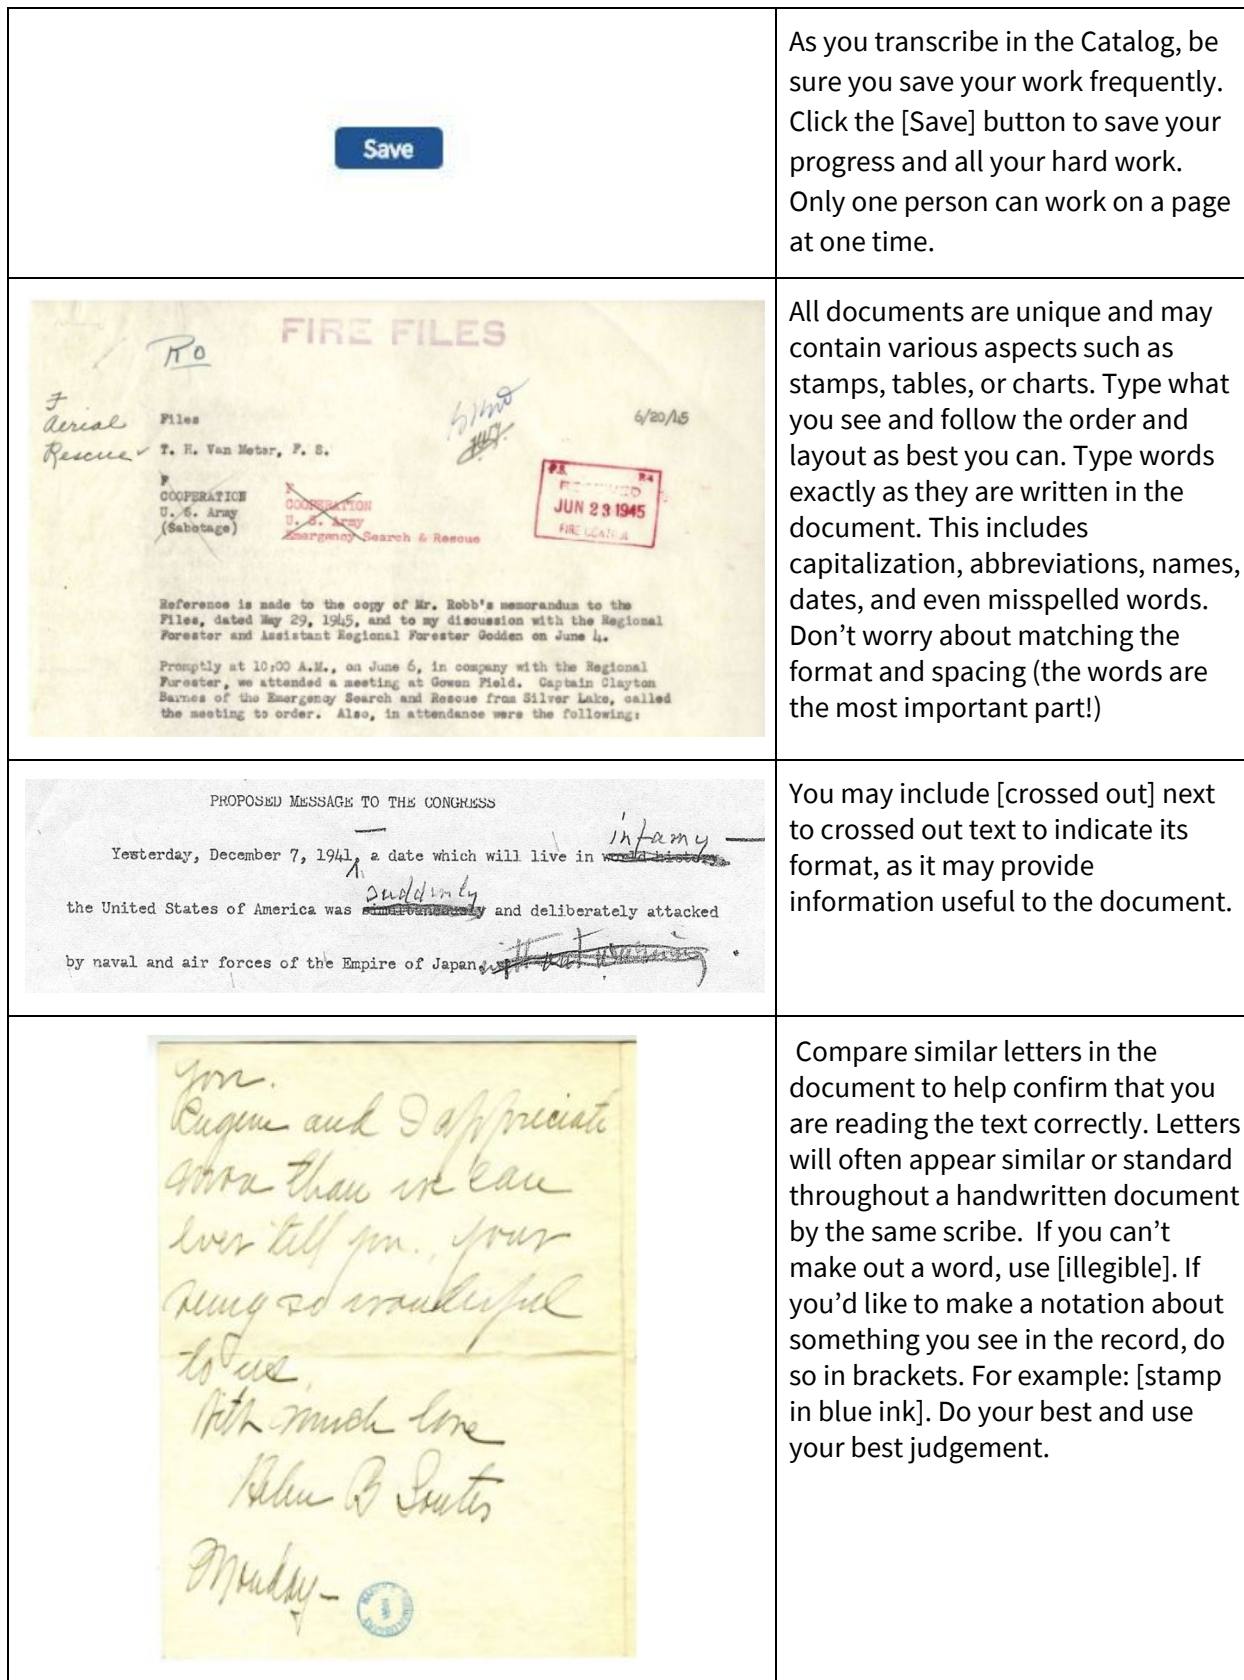 Save
As you transcribe in the Catalog, be
sure you save your work frequently.
Click the [Save] button to save your
progress and all your hard work.
Only one person can work on a page
at one time.
FIRE FILES
RO
F
Aerial
Rescue
Files
6/20/45
T. H. Van Meter, F. S.
F
COOPERATION
U. S. Army
(Sabotage)
F
COOPERATION
U. S. Army
Emergency Search & Rescue
R4
RECEIVED
JUN 23 1945
FIRE CONTROL
Reference is made to the copy of Mr. Robb's memorandum to the
Files, dated May 29, 1945, and to my discussion with the Regional
Forester and Assistant Regional Forester Godden on June 4.
Promptly at 10:00 A.M., on June 6, in company with the Regional
Forester, we attended a meeting at Gowen Field. Captain Clayton
Barnes of the Emergency Search and Rescue from Silver Lake, called
the meeting to order. Also, in attendance were the following:
All documents are unique and may
contain various aspects such as
stamps, tables, or charts. Type what
you see and follow the order and
layout as best you can. Type words
exactly as they are written in the
document. This includes
capitalization, abbreviations, names,
dates, and even misspelled words.
Don’t worry about matching the
format and spacing (the words are
the most important part!)
PROPOSED MESSAGE TO THE CONGRESS
infamy —
Yesterday, December 7, 1941, a date which will live in world history
suddenly
the United States of America was simultaneously and deliberately attacked
by naval and air forces of the Empire of Japan without warning.
You may include [crossed out] next
to crossed out text to indicate its
format, as it may provide
information useful to the document.
you.
Eugene and I appreciate
more than we can
ever tell you, your
being so wonderful
to us.
With much love
Helen B Soutes
Monday-
Compare similar letters in the
document to help confirm that you
are reading the text correctly. Letters
will often appear similar or standard
throughout a handwritten document
by the same scribe.  If you can’t
make out a word, use [illegible]. If
you’d like to make a notation about
something you see in the record, do
so in brackets. For example: [stamp
in blue ink]. Do your best and use
your best judgement.